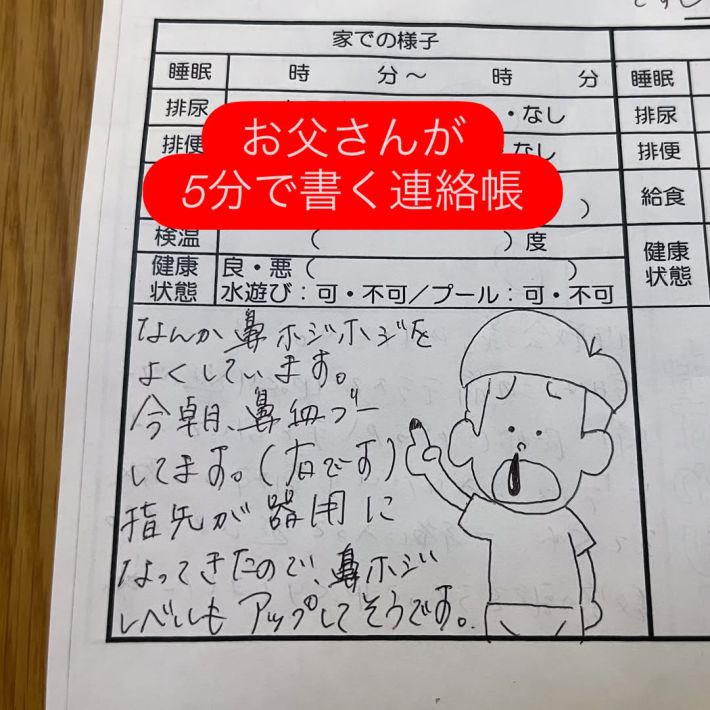 家での様子
睡眠 時 分〜 時 分 睡眠
排尿 ・なし 排尿
排便 なし 排便
お父さんが
5分で書く連絡帳
) 給食
検温 ( )度
健康状態 良・悪( ) 健康状態
水遊び:可・不可/プール:可・不可
なんか鼻ホジホジを
よくしています。
今朝、鼻血ブー
してます。(右です)
指先が器用に
なってきたので、鼻ホジ
レベルもアップしてそうです。